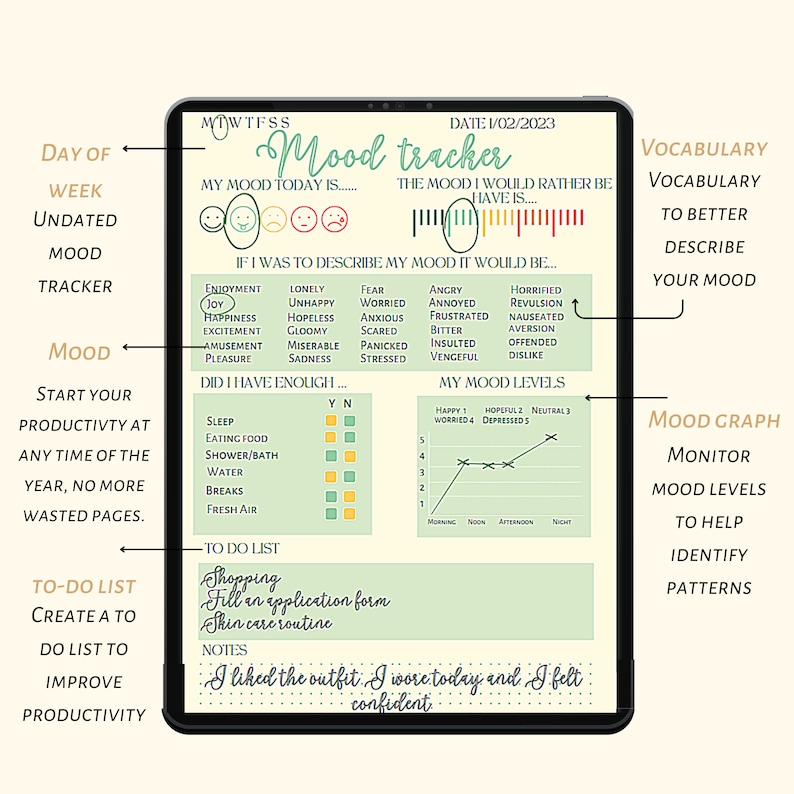 M T W T F S S
DATE 1/02/2023
Mood tracker
MY MOOD TODAY IS......
THE MOOD I WOULD RATHER BE
HAVE IS....
IF I WAS TO DESCRIBE MY MOOD IT WOULD BE...
ENJOYMENT
JOY
HAPPINESS
EXCITEMENT
AMUSEMENT
PLEASURE
LONELY
UNHAPPY
HOPELESS
GLOOMY
MISERABLE
SADNESS
FEAR
WORRIED
ANXIOUS
SCARED
PANICKED
STRESSED
ANGRY
ANNOYED
FRUSTRATED
BITTER
INSULTED
VENGEFUL
HORRIFIED
REVULSION
NAUSEATED
AVERSION
OFFENDED
DISLIKE
DID I HAVE ENOUGH ...
Y N
SLEEP
EATING FOOD
SHOWER/BATH
WATER
BREAKS
FRESH AIR
MY MOOD LEVELS
HAPPY 1 HOPEFUL 2 NEUTRAL 3
WORRIED 4 DEPRESSED 5
5
4
3
2
1
MORNING NOON AFTERNOON NIGHT
TO DO LIST
Shopping
Fill an application form
Skin care routine
NOTES
I liked the outfit I wore today and I felt
confident
DAY OF
WEEK
UNDATED
MOOD
TRACKER
MOOD
START YOUR
PRODUCTIVTY AT
ANY TIME OF THE
YEAR, NO MORE
WASTED PAGES.
TO-DO LIST
CREATE A TO
DO LIST TO
IMPROVE
PRODUCTIVITY
VOCABULARY
VOCABULARY
TO BETTER
DESCRIBE
YOUR MOOD
MOOD GRAPH
MONITOR
MOOD LEVELS
TO HELP
IDENTIFY
PATTERNS